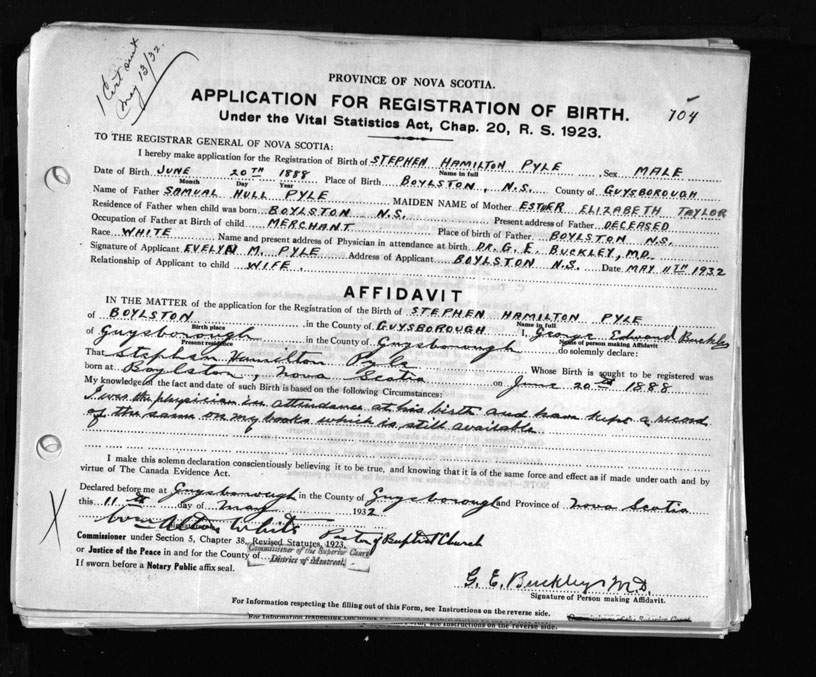 1 Cert sent
May 13/32.
PROVINCE OF NOVA SCOTIA.
APPLICATION FOR REGISTRATION OF BIRTH.
704
Under the Vital Statistics Act, Chap. 20, R. S. 1923.
TO THE REGISTRAR GENERAL OF NOVA SCOTIA:
I hereby make application for the Registration of Birth of STEPHEN HAMILTON PYLE Sex MALE
Name in full
Date of Birth JUNE 20TH 1888 Place of Birth BOYLSTON, N.S. County of GUYSBOROUGH
Month Day Year
Name of Father SAMUAL HULL PYLE MAIDEN NAME of Mother ESTHER ELIZABETH TAYLOR
Residence of Father when child was born BOYLSTON N.S. Present address of Father DECEASED
Occupation of Father at Birth of child MERCHANT Place of birth of Father BOYLSTON N.S.
Race WHITE Name and present address of Physician in attendance at birth DR. G. E. BUCKLEY, M.D.
Signature of Applicant EVELYN M. PYLE Address of Applicant BOYLSTON N.S. Date MAY 11TH 1932
Relationship of Applicant to child WIFE.
AFFIDAVIT
IN THE MATTER of the application for the Registration of the Birth of STEPHEN HAMILTON PYLE
Name in full
of BOYLSTON, in the County of GUYSBOROUGH I, George Edward Buckley
Birth place Name of person making Affidavit
of Guysborough in the County of Guysborough do solemnly declare:
Present residence
That Stephen Hamilton Pyle Whose Birth is sought to be registered was
born at Boylston, Nova Scotia on June 20th 1888
My knowledge of the fact and date of such Birth is based on the following Circumstances:
I was the physician in attendance at his birth and have kept a record
of the same on my books which is still available
I make this solemn declaration conscientiously believing it to be true, and knowing that it is of the same force and effect as if made under oath and by
virtue of The Canada Evidence Act.
Declared before me at Guysborough in the County of Guysborough and Province of Nova Scotia
this 11th day of May 1932
White Pastor of Baptist Church
Commissioner under Section 5, Chapter 38, Revised Statutes, 1923,
or Justice of the Peace in and for the County of
Commissioner of the Superior Court
District of Montreal.
If sworn before a Notary Public affix seal.
G. E. Buckley M.D.
Signature of Person making Affidavit.
For Information respecting the filling out of this Form, see Instructions on the reverse side.